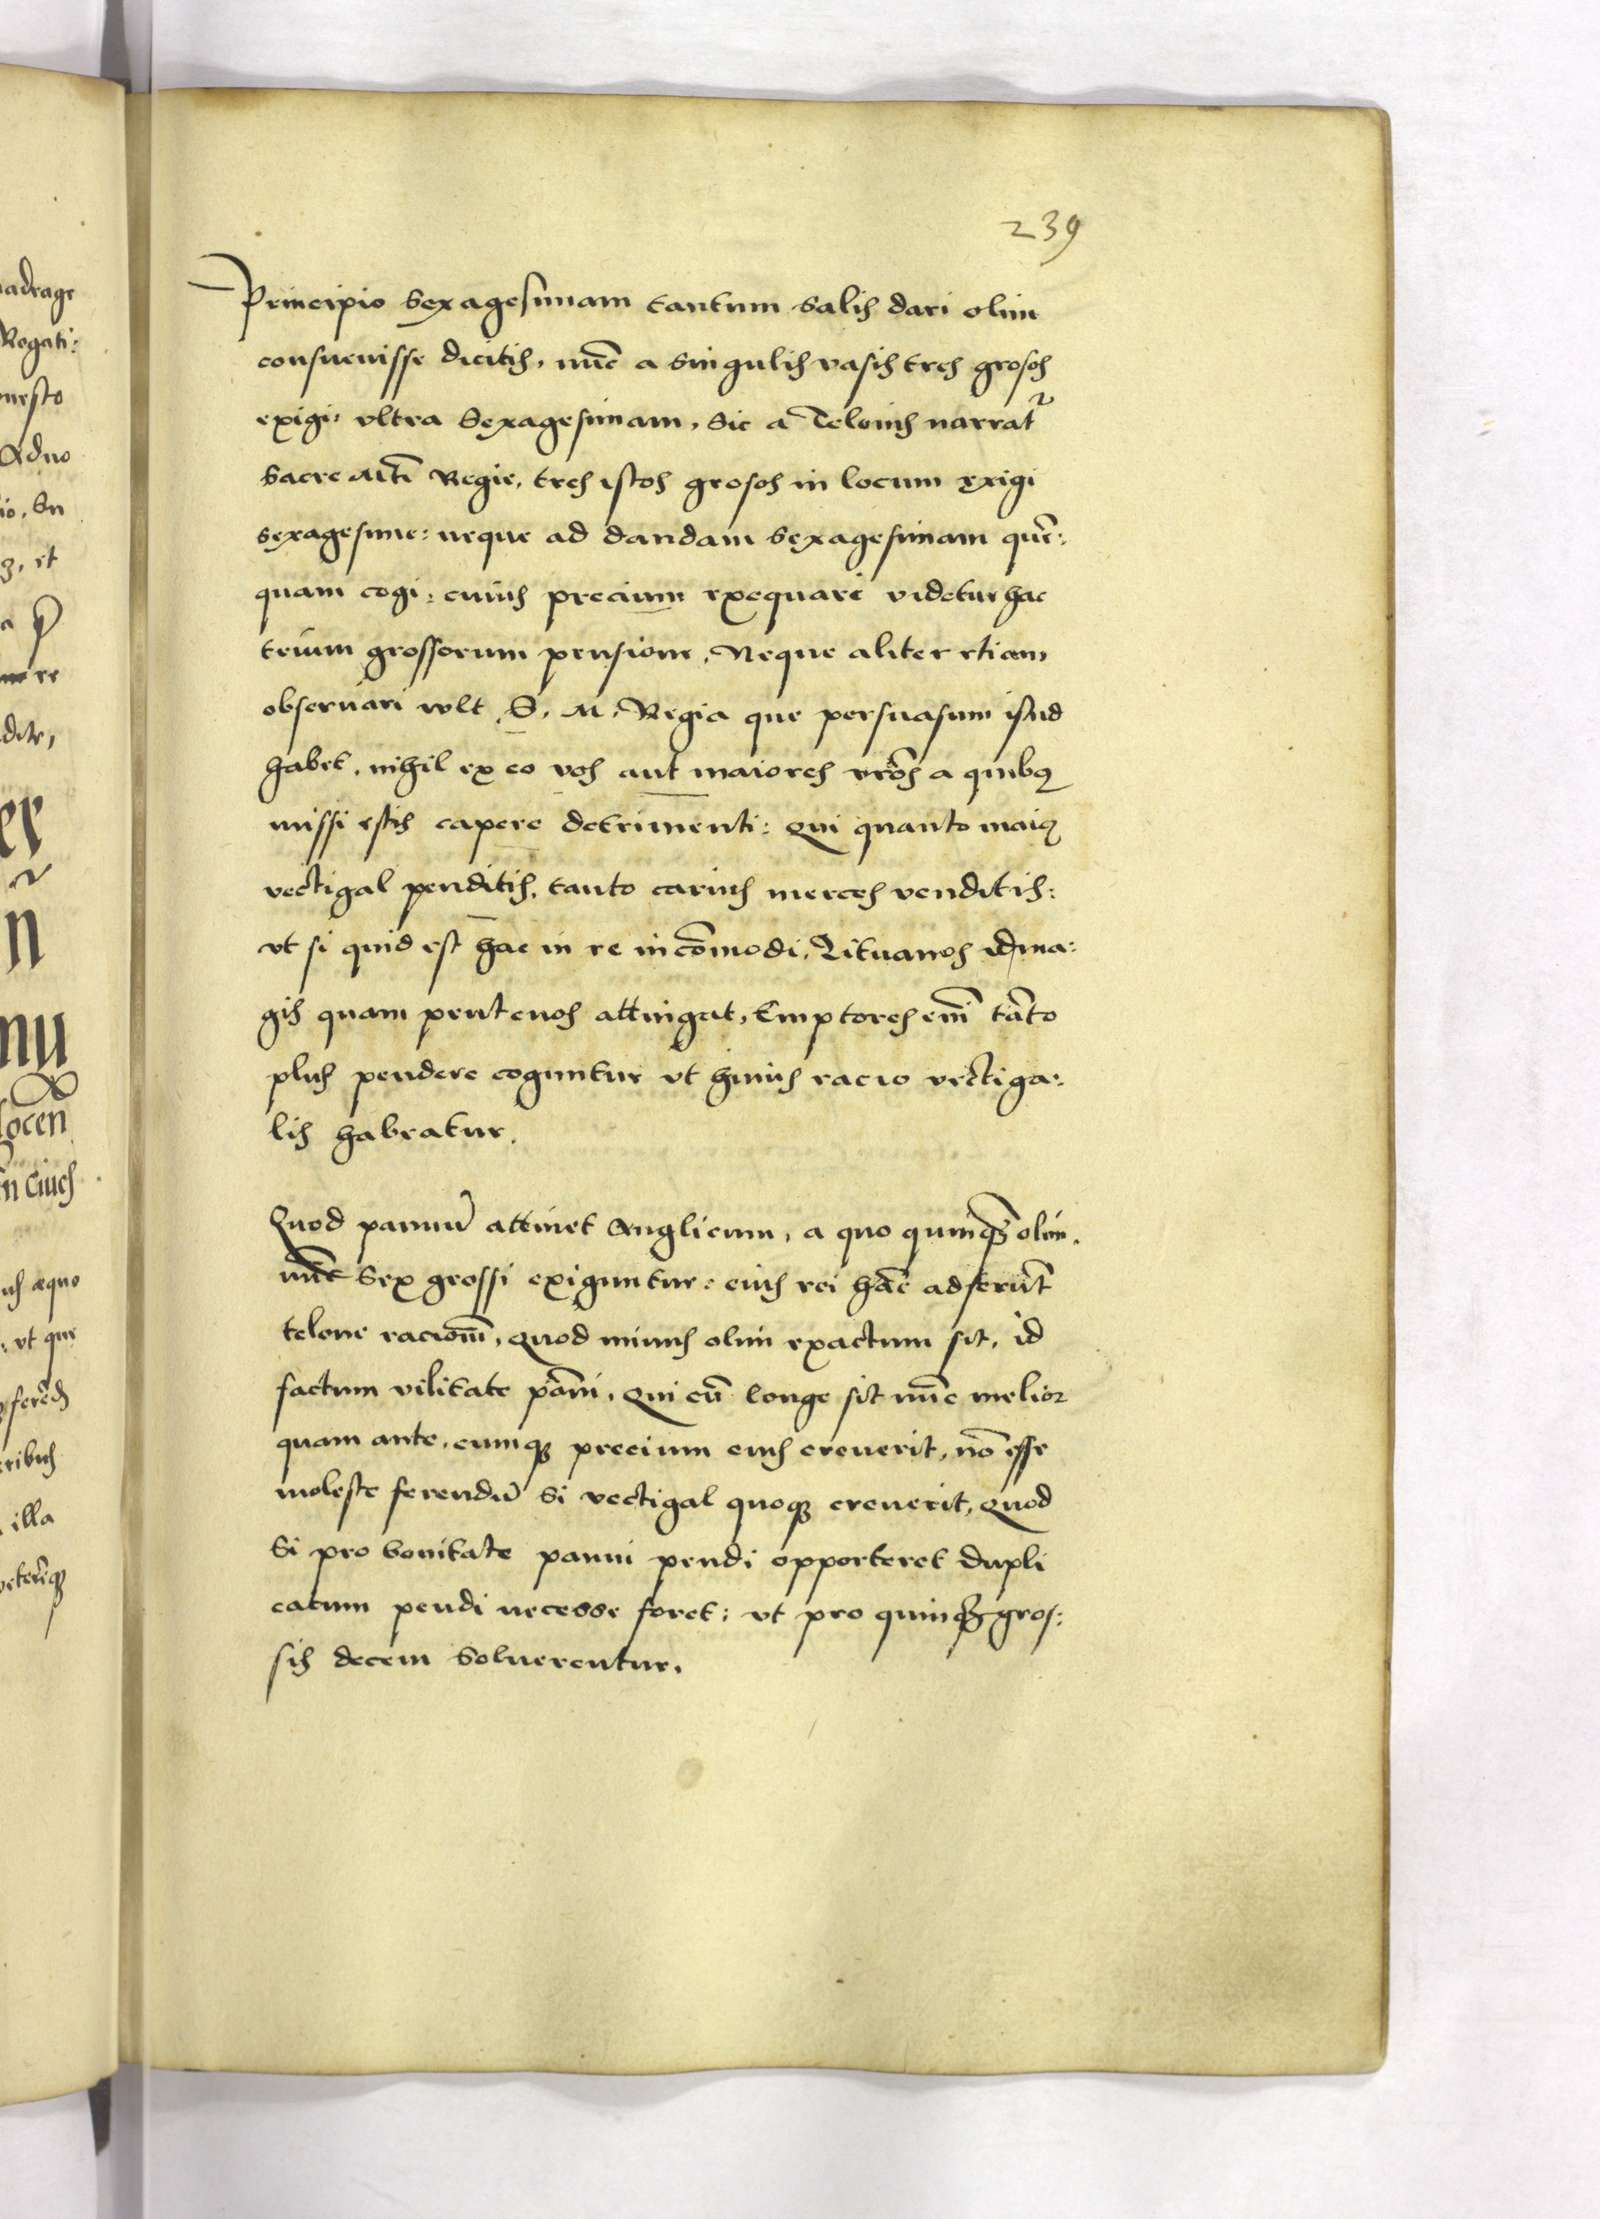 239
Principio Sexagesimam tantum Salis dari olim
consuevisse dicitis, nu̅c a singulis vasis tres grosos
exigi: vltra Sexagesimam, Sic a Telonis narrat᷑
Sacre M̅ti Regie, tres istos grosos in locum exigi
sexagesime: neque ad dandam Sexagesimam que̅:
quam cogi: cuius precium exequare videtur hac
trium grossorum pensione, Neque aliter etiam
observari wlt S. M. Regia que persuasum istud
habet, nihil ex eo vos aut maiores vr̅os a quibꝰ
missi estis capere detrimenti: Qui quanto maiꝰ
vectigal penditis, tanto carius merces venditis:
vt si quid est hac in re inco̅modi, Lituanos id ma:
gis quam prutenos attingat, Emptores eni̅ ta̅to
plus pendere coguntur vt huius racio vectiga:
lis habeatur.
Quod pannu̅ attinet Anglicum, a quo quinqꝫ olim.
nu̅c Sex grossi exiguntur: eius rei ha̅c adferu̅t
telone racione̅, Quod minus olim exactum sit, id
factum vilitate pa̅ni, Qui cu̅ longe sit nu̅c melior
quam ante, cumqꝫ precium eius creverit, no̅ esse
moleste ferendu̅ Si vectigal quoqꝫ creverit, Quod
Si pro bonitate panni pendi opporteret dupli
catum pendi necesse foret: vt pro quinqꝫ gros:
sis decem Solverentur.
adrage
Rogati:
nesto
Aduo
io, Sn
ꝫ, et
re
dite,
er
n
nu
locen
n Ciues
us æquo
vt que
feren̅d
ribus
illa